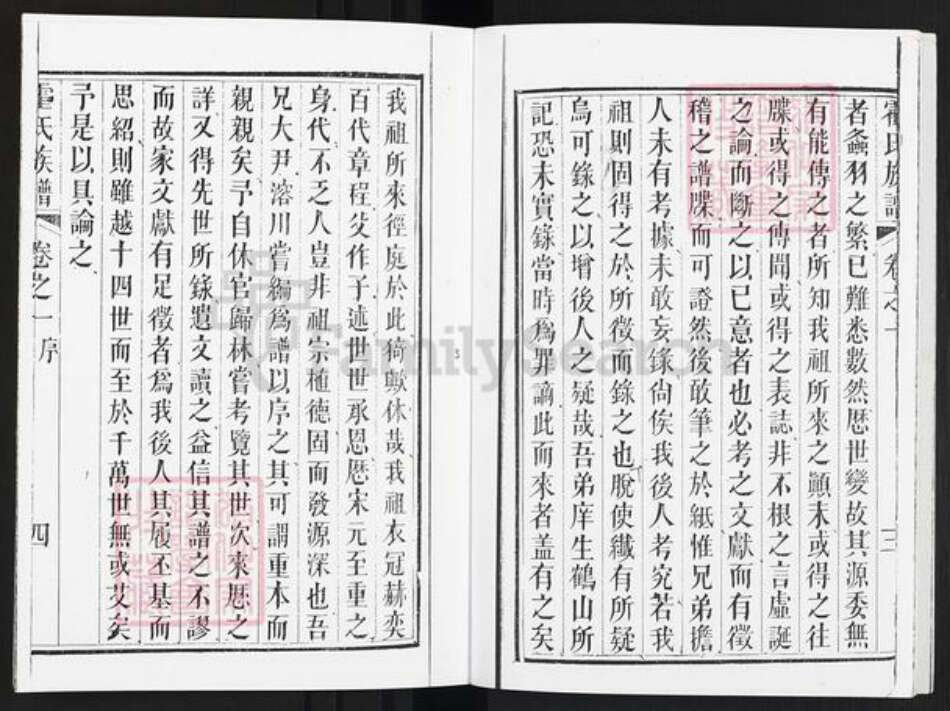 霍氏族譜 卷之一 三
者螽羽之繁已難悉數然歷世變故其源委無
有能傳之者所知我祖所來之顛末或得之往
牒或得之傳聞或得之表誌非不根之言虛誕
之論而斷之以已意者也必考之文獻而有徵
稽之譜牒而可證然後敢筆之於紙惟兄弟擔
人未有考據未敢妄錄尙俟我後人考究若我
祖則固得之於所徵而錄之也脫使纖有所疑
烏可錄之以增後人之疑哉吾弟庠生鶴山所
記恐未實錄當時爲罪謫此而來者盖有之矣
我祖所來徑庭於此猗歟休哉我祖衣冠赫奕
百代章程父作子述世世承恩歷宋元至重之
身代不乏人豈非祖宗植德固而發源深也吾
兄大尹溶川嘗編爲譜以序之其可謂重本而
親親矣予自休官歸林嘗考覽其世次來歷之
詳又得先世所錄遺文讀之益信其譜之不謬
而故家文獻有足徵者爲我後人其履丕基而
思紹則雖越十四世而至於千萬世無或艾矣
予是以具論之
霍氏族譜 卷之一 序 四
FamilySearch